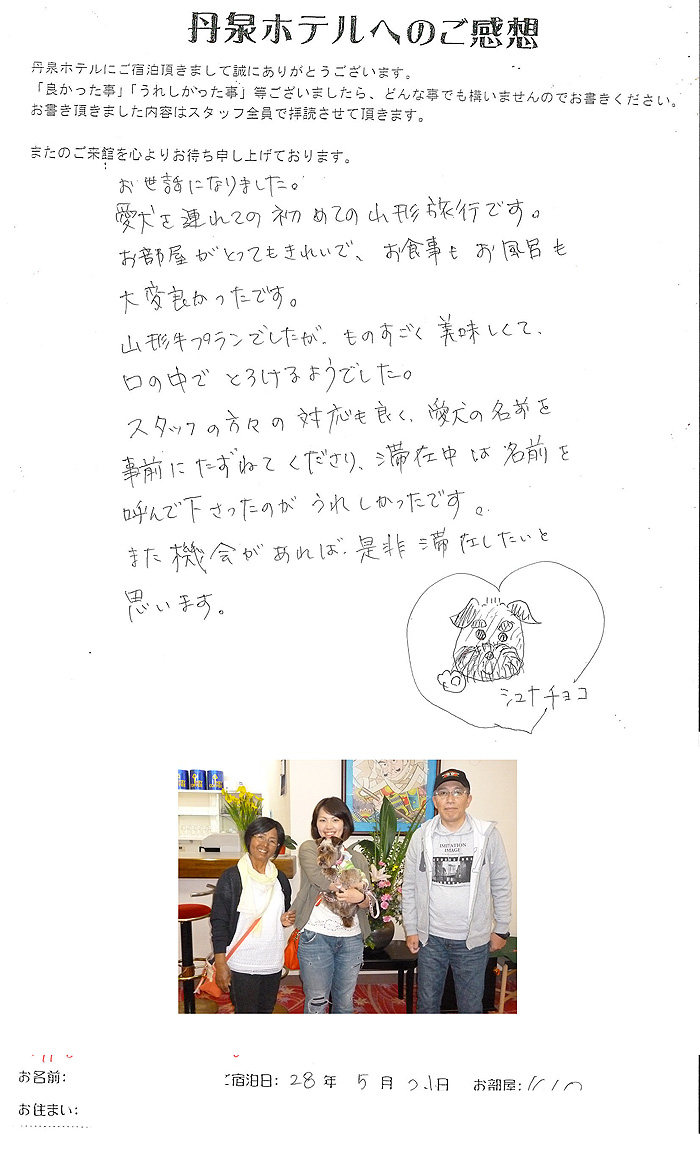 丹泉ホテルへのご感想
丹泉ホテルにご宿泊頂きまして誠にありがとうございます。
「良かった事」「うれしかった事」等ございましたら、どんな事でも構いませんのでお書きください。
お書き頂きました内容はスタッフ全員で拝読させて頂きます。
またのご来館を心よりお待ち申し上げております。
お世話になりました。
愛犬を連れての初めての山形旅行です。
お部屋がとってもきれいで、お食事もお風呂も
大変良かったです。
山形牛プランでしたが、ものすごく美味しくて、
口の中でとろけるようでした。
スタッフの方々の対応も良く、愛犬の名前を
事前にたずねてくださり、滞在中は名前を
呼んで下さったのがうれしかったです。
また機会があれば、是非滞在したいと
思います。
シュナ チョコ
IMITATION
IMAGE
お名前:
ご宿泊日: 28年 5月 日 お部屋:
お住まい: